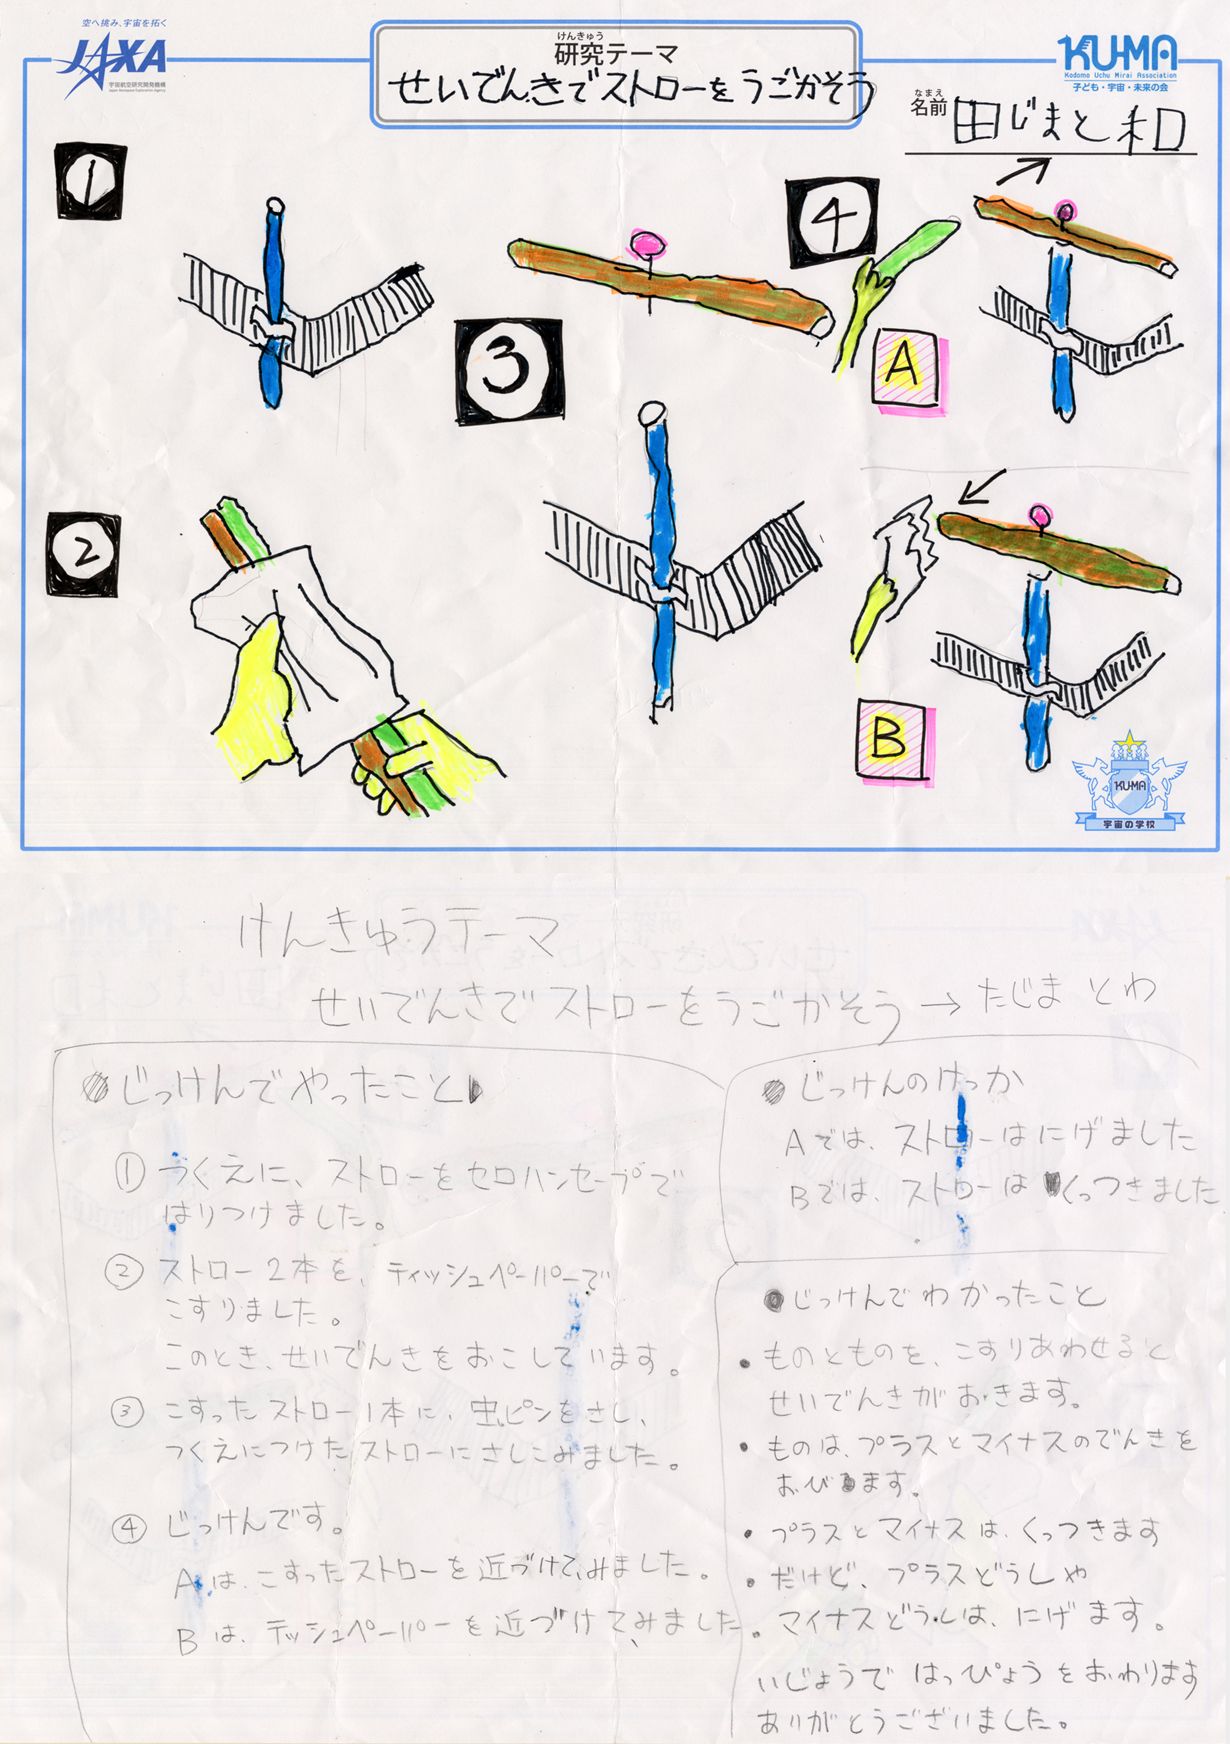 空へ挑み、宇宙を拓く
JAXA
宇宙航空研究開発機構
Japan Aerospace Exploration Agency
けんきゅう
研究テーマ
せいでんきでストローをうごかそう
KU-MA
Kodomo Uchu Mirai Association
子ども・宇宙・未来の会
なまえ
名前 田じまと和
1
2
3
4
A
B
KU-MA
宇宙の学校
けんきゅうテーマ
せいでんきでストローをうごかそう→たじま とわ
●じっけんでやったこと
① つくえに、ストローをセロハンテープで
はりつけました。
② ストロー2本を、ティッシュペーパーで
こすりました。
このとき、せいでんきをおこしています。
③ こすったストロー1本に、虫ピンをさし、
つくえにつけたストローにさしこみました。
④ じっけんです。
Aは、こすったストローを近づけてみました。
Bは、テッシュペーパーを近づけてみました。
●じっけんのけっか
Aでは、ストローはにげました
Bでは、ストローはくっつきました
●じっけんでわかったこと
・ものとものを、こすりあわせると
せいでんきがおきます。
・ものは、プラスとマイナスのでんきを
おびます。
・プラスとマイナスは、くっつきます
・だけど、プラスどうしや
マイナスどうしは、にげます。
いじょうで はっぴょうをおわります
ありがとうございました。